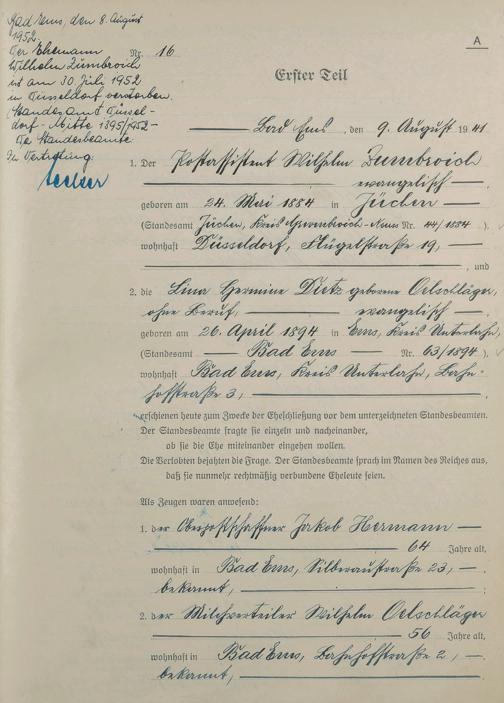 Bad Ems, den 8. August
1952.
Der Ehemann
Wilhelm Zumbroich
ist am 30. Juli 1952
in Düsseldorf verstorben.
(Standesamt Düssel-
dorf-Mitte 1395/1952-
Der Standesbeamte
In Vertretung
A
Nr. 16
Erster Teil
Bad Ems, den 9. August 1941
1. Der Postassistent Wilhelm Zumbroich
evangelisch
geboren am 24. Mai 1884 in Jüchen
(Standesamt Jüchen, Kreis Grevenbroich-Neuss Nr. 44/1884).
wohnhaft Düsseldorf, Flügelstraße 19,
, und
2. die Lina Hermine Dietz geborene Oelschläger,
ohne Beruf, evangelisch
geboren am 26. April 1894 in Ems, Kreis Unterlahn,
(Standesamt Bad Ems Nr. 63/1894).
wohnhaft Bad Ems, Kreis Unterlahn, Bahn-
hofstraße 3,
erschienen heute zum Zwecke der Eheschließung vor dem unterzeichneten Standesbeamten.
Der Standesbeamte fragte sie einzeln und nacheinander,
ob sie die Ehe miteinander eingehen wollen.
Die Verlobten bejahten die Frage. Der Standesbeamte sprach im Namen des Reiches aus,
daß sie nunmehr rechtmäßig verbundene Eheleute seien.
Als Zeugen waren anwesend:
1. der Oberpostschaffner Jakob Hermann
64 Jahre alt,
wohnhaft in Bad Ems, Silberaustraße 23,
bekannt,
2. der Milchverteiler Wilhelm Oelschläger
56 Jahre alt,
wohnhaft in Bad Ems, Bahnhofstraße 2,
bekannt,